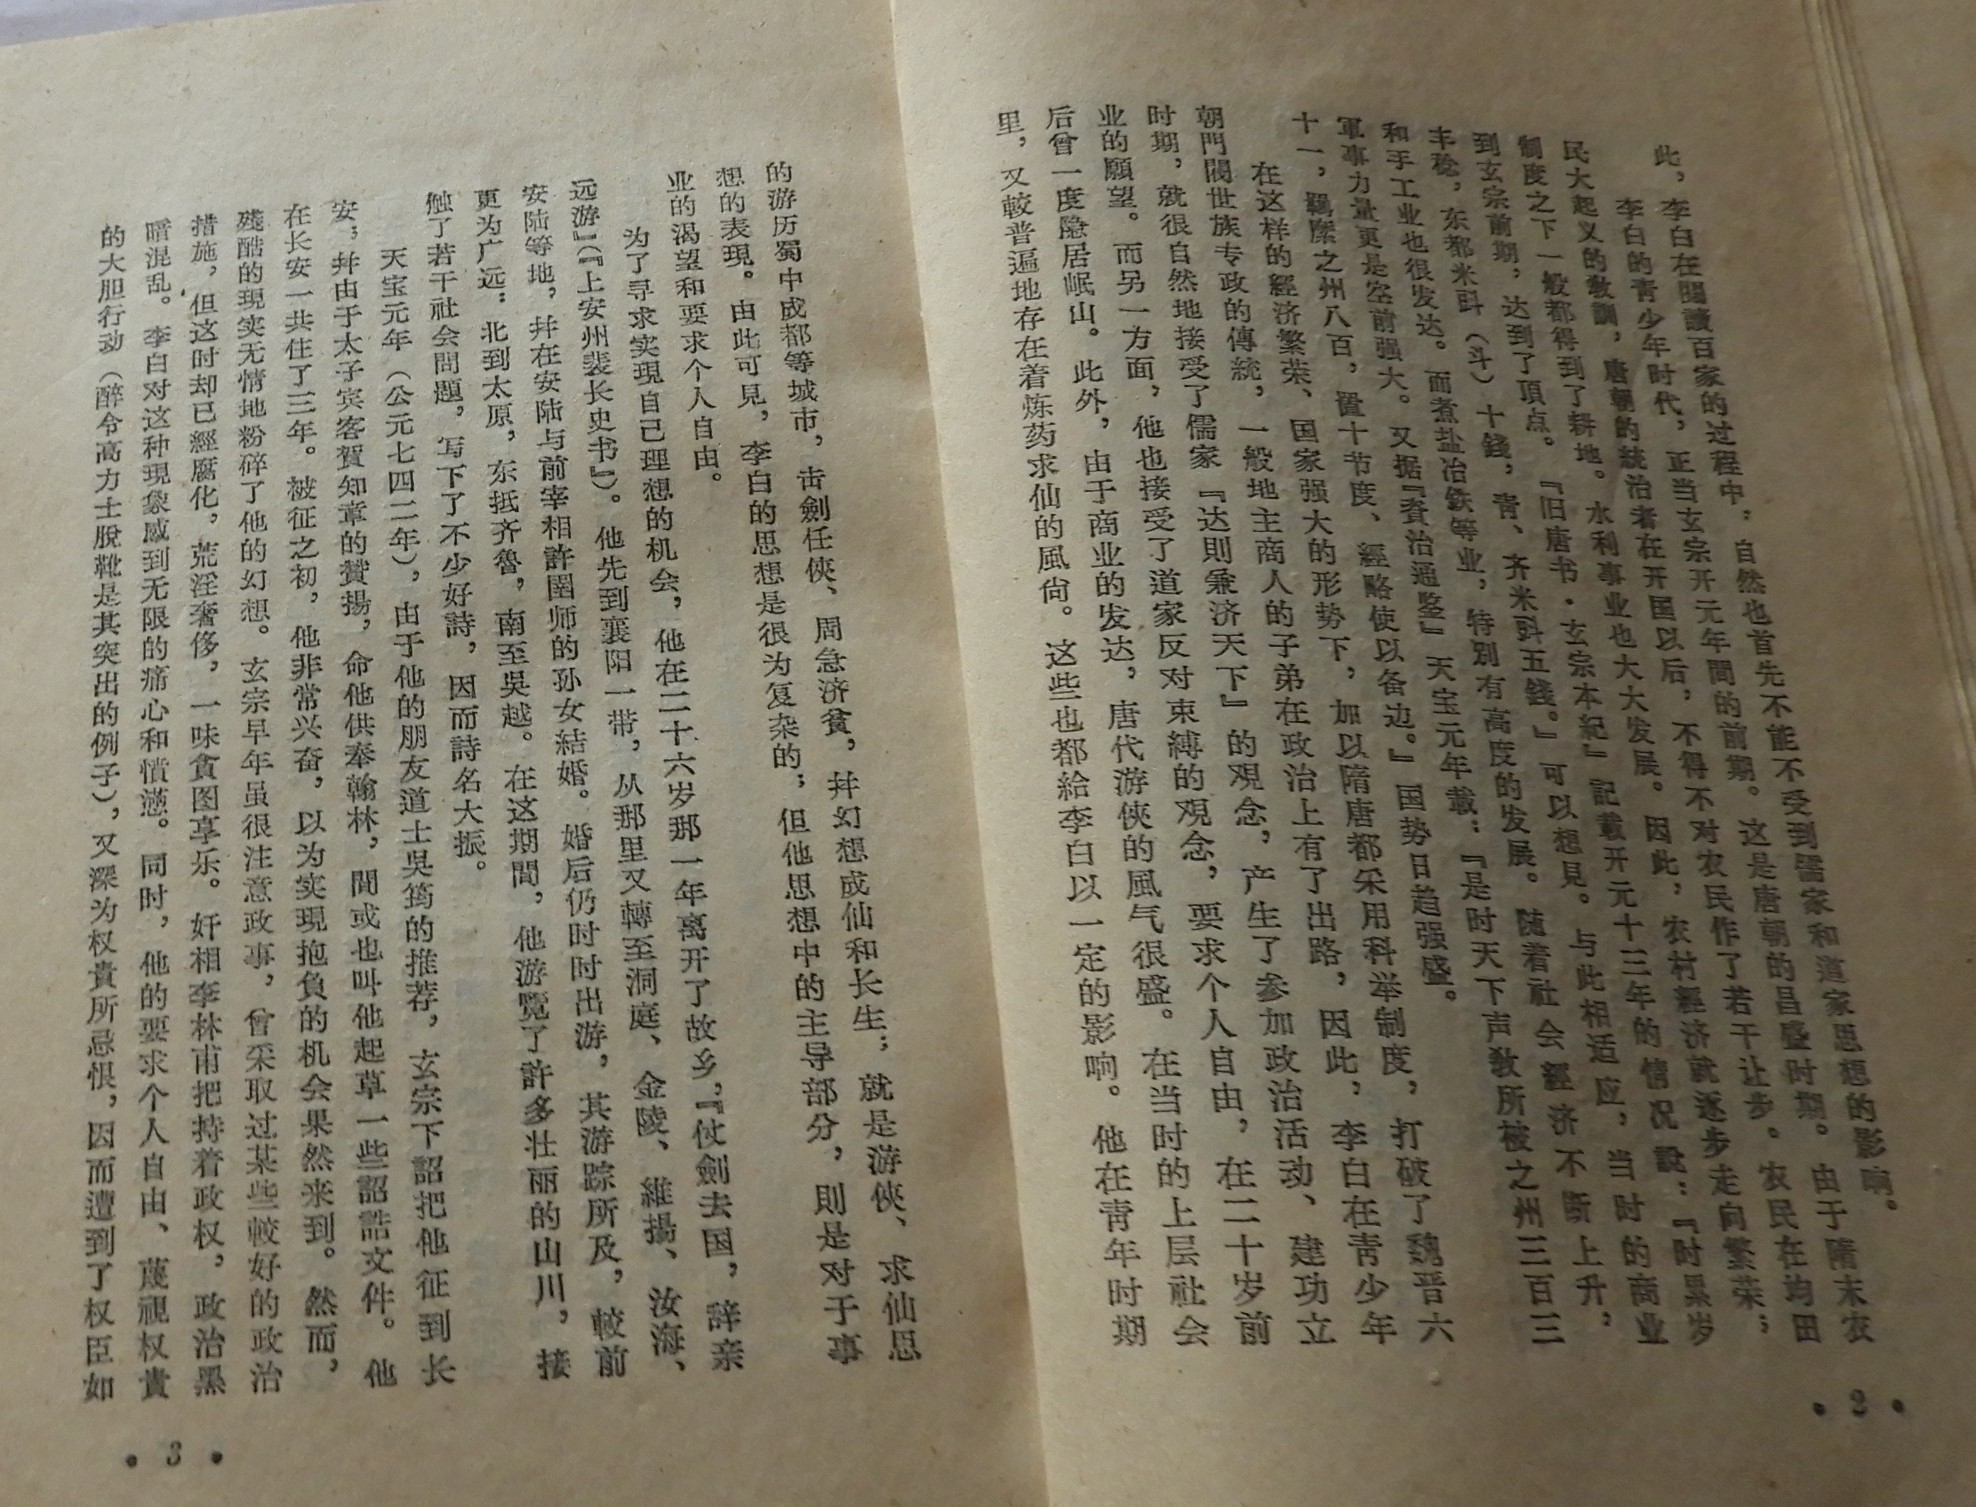 此，李白在閱讀百家的过程中，自然也首先不能不受到儒家和道家思想的影响。
李白的青少年时代，正当玄宗开元年間的前期。这是唐朝的昌盛时期。由于隋末农
民大起义的教訓，唐朝的統治者在开国以后，不得不对农民作了若干让步。农民在均田
制度之下一般都得到了耕地。水利事业也大大发展。因此，农村經济就逐步走向繁荣；
到玄宗前期，达到了頂点。『旧唐书·玄宗本紀』記載开元十三年的情况說：『时累岁
丰稔，东都米㪷（斗）十錢，青、齐米㪷五錢。』可以想見。与此相适应，当时的商业
和手工业也很发达。而煮盐冶鉄等业，特别有高度的发展。随着社会經济不断上升，
軍事力量更是空前强大。又据『資治通鉴』天宝元年載：『是时天下声教所被之州三百三
十一，羈縻之州八百，置十节度、經略使以备边。』国势日趋强盛。
在这样的經济繁荣、国家强大的形势下，加以隋唐都采用科举制度，打破了魏晋六
朝門閥世族专政的傳統，一般地主商人的子弟在政治上有了出路，因此，李白在青少年
时期，就很自然地接受了儒家『达則兼济天下』的观念，产生了参加政治活动、建功立
业的願望。而另一方面，他也接受了道家反对束縛的观念，要求个人自由，在二十岁前
后曾一度隐居岷山。此外，由于商业的发达，唐代游俠的風气很盛。在当时的上层社会
里，又較普遍地存在着炼药求仙的風尙。这些也都給李白以一定的影响。他在青年时期
• 2 •
的游历蜀中成都等城市，击劍任俠、周急济貧，幷幻想成仙和长生；就是游俠、求仙思
想的表現。由此可見，李白的思想是很为复杂的；但他思想中的主导部分，則是对于事
业的渴望和要求个人自由。
为了寻求实現自己理想的机会，他在二十六岁那一年离开了故乡，『仗劍去国，辞亲
远游』（『上安州裴长史书』）。他先到襄阳一带，从那里又轉至洞庭、金陵、維揚、汝海、
安陆等地，幷在安陆与前宰相許圉师的孙女結婚。婚后仍时时出游，其游踪所及，較前
更为广远：北到太原，东抵齐魯，南至吳越。在这期間，他游覽了許多壮丽的山川，接
触了若干社会問題，写下了不少好詩，因而詩名大振。
天宝元年（公元七四二年），由于他的朋友道士吳筠的推荐，玄宗下詔把他征到长
安；幷由于太子宾客賀知章的贊揚，命他供奉翰林，間或也叫他起草一些詔誥文件。他
在长安一共住了三年。被征之初，他非常兴奋，以为实現抱負的机会果然来到。然而，
殘酷的現实无情地粉碎了他的幻想。玄宗早年虽很注意政事，曾采取过某些較好的政治
措施，但这时却已經腐化，荒淫奢侈，一味貪图享乐。奸相李林甫把持着政权，政治黑
暗混乱。李白对这种現象感到无限的痛心和憤懣。同时，他的要求个人自由、蔑視权貴
的大胆行动（醉令高力士脫靴是其突出的例子），又深为权貴所忌恨，因而遭到了权臣如
• 3 •